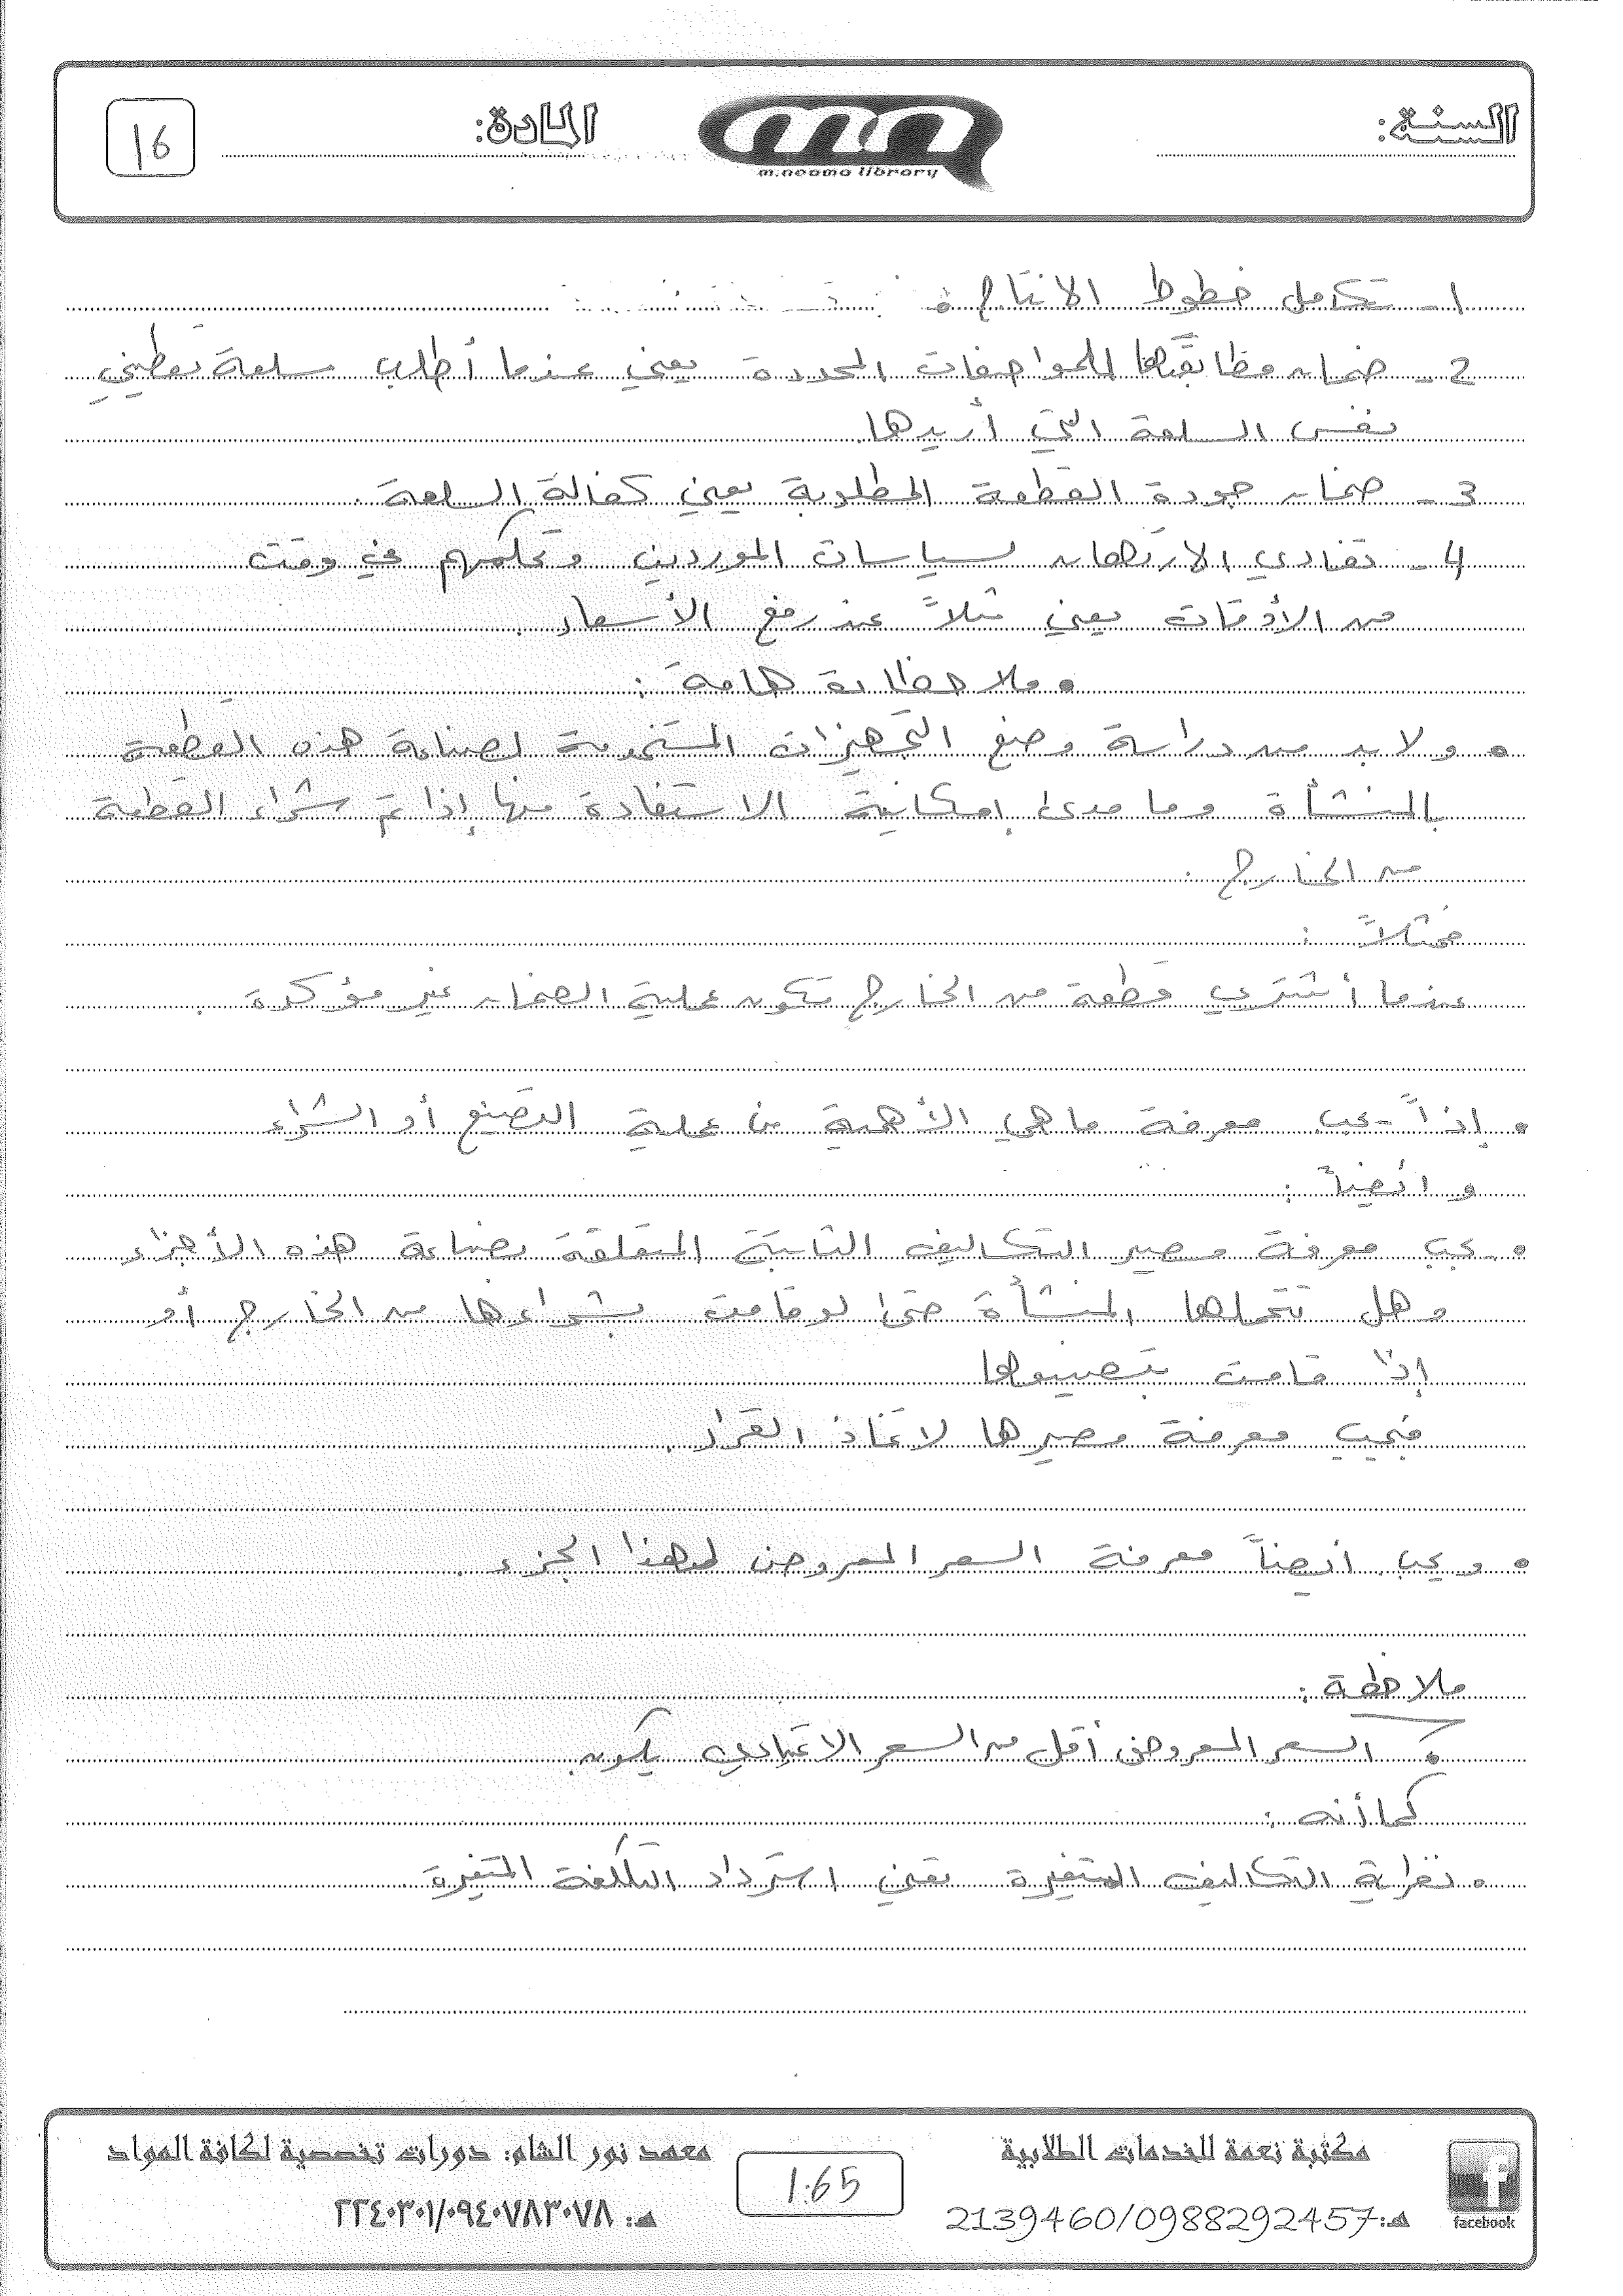 السنة:
المادة:
16
m.neama library
1- تكامل خطوط الانتاج
2- ضمان مطابقتها للمواصفات المحددة يعني عندما أطلب سلعة تعطيني
نفس السلعة التي أريدها.
3- ضمان جودة القطعة المطلوبة يعني كفالة السلعة.
4- تفادي الارتهان لسياسات الموردين وتحكمهم في وقت
من الأوقات يعني مثلاً عند رفع الأسعار.
• ملاحظات هامة:
• ولا بد من دراسة وضع التجهيزات المستخدمة لصناعة هذه القطعة
بالمنشأة وما مدى إمكانية الاستفادة منها إذا تم شراء القطعة
من الخارج.
فمثلاً:
عندما أشتري قطعة من الخارج تكون عملية الضمان غير مؤكدة.
• إذاً يجب معرفة ما هي الأهمية من عملية التصنيع أو الشراء
وأيضاً:
• يجب معرفة مصير التكاليف الثابتة المتعلقة بصناعة هذه الأجزاء
وهل تتحملها المنشأة حتى لو قامت بشراءها من الخارج أو
إذا قامت بتصنيعها
فيجب معرفة مصيرها لاتخاذ القرار.
• ويجب أيضاً معرفة السعر المعروض لهذا الجزء.
ملاحظة:
• السعر المعروض أقل من السعر الاعتيادي يكون.
كما أنه:
• نظرية التكاليف المتغيرة تعني استرداد التكلفة المتغيرة
مكتبة نعمة للخدمات الطلابية
هـ: 2139460/0988292457
facebook
1.65
معهد نور الشام: دورات تخصصية لكافة المواد
هـ: ٢٢٤٠٣٠١/٠٩٤٠٧٨٣٠٧٨